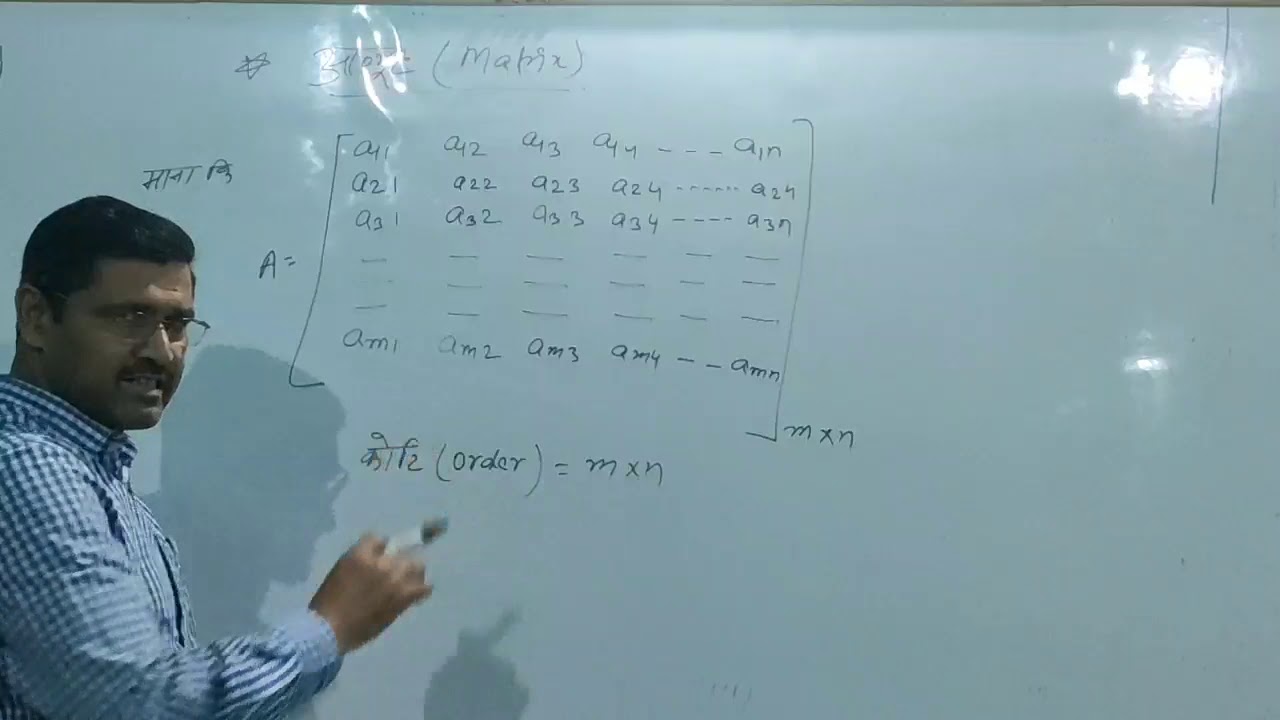 आव्यूह (Matrix)
माना कि
A =
a11 a12 a13 a14 --- a1n
a21 a22 a23 a24 ------ a24
a31 a32 a33 a34 ---- a3n
— — — — — —
— — — — — —
— — — — — —
am1 am2 am3 am4 -- amn
m×n
कोटि (order) = m×n